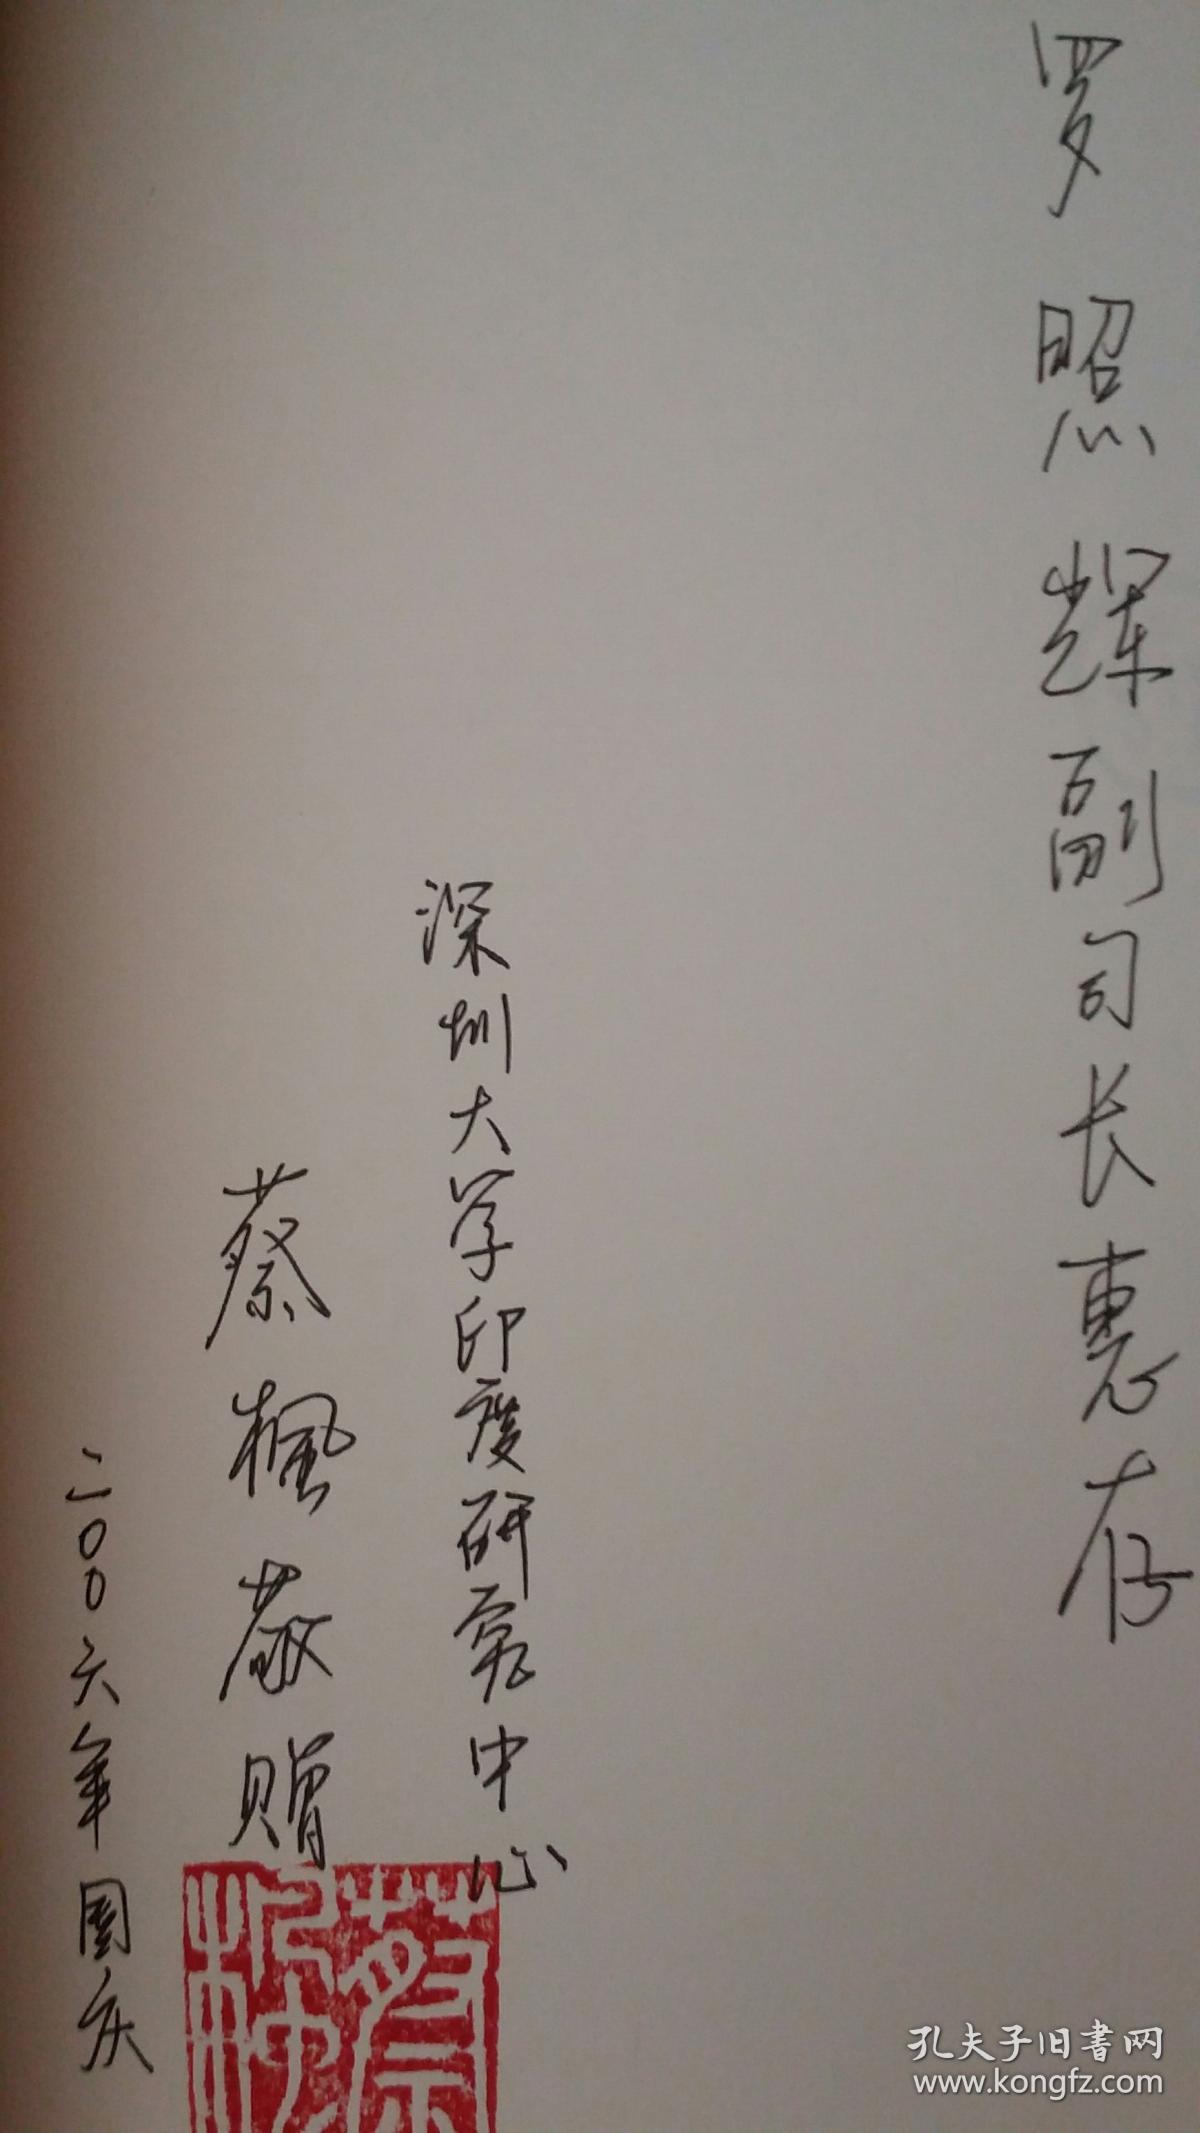 罗照辉副司长惠存
深圳大学印度研究中心
蔡楓敬赠
二〇〇六年国庆
蔡枫
孔夫子旧书网
www.kongfz.com